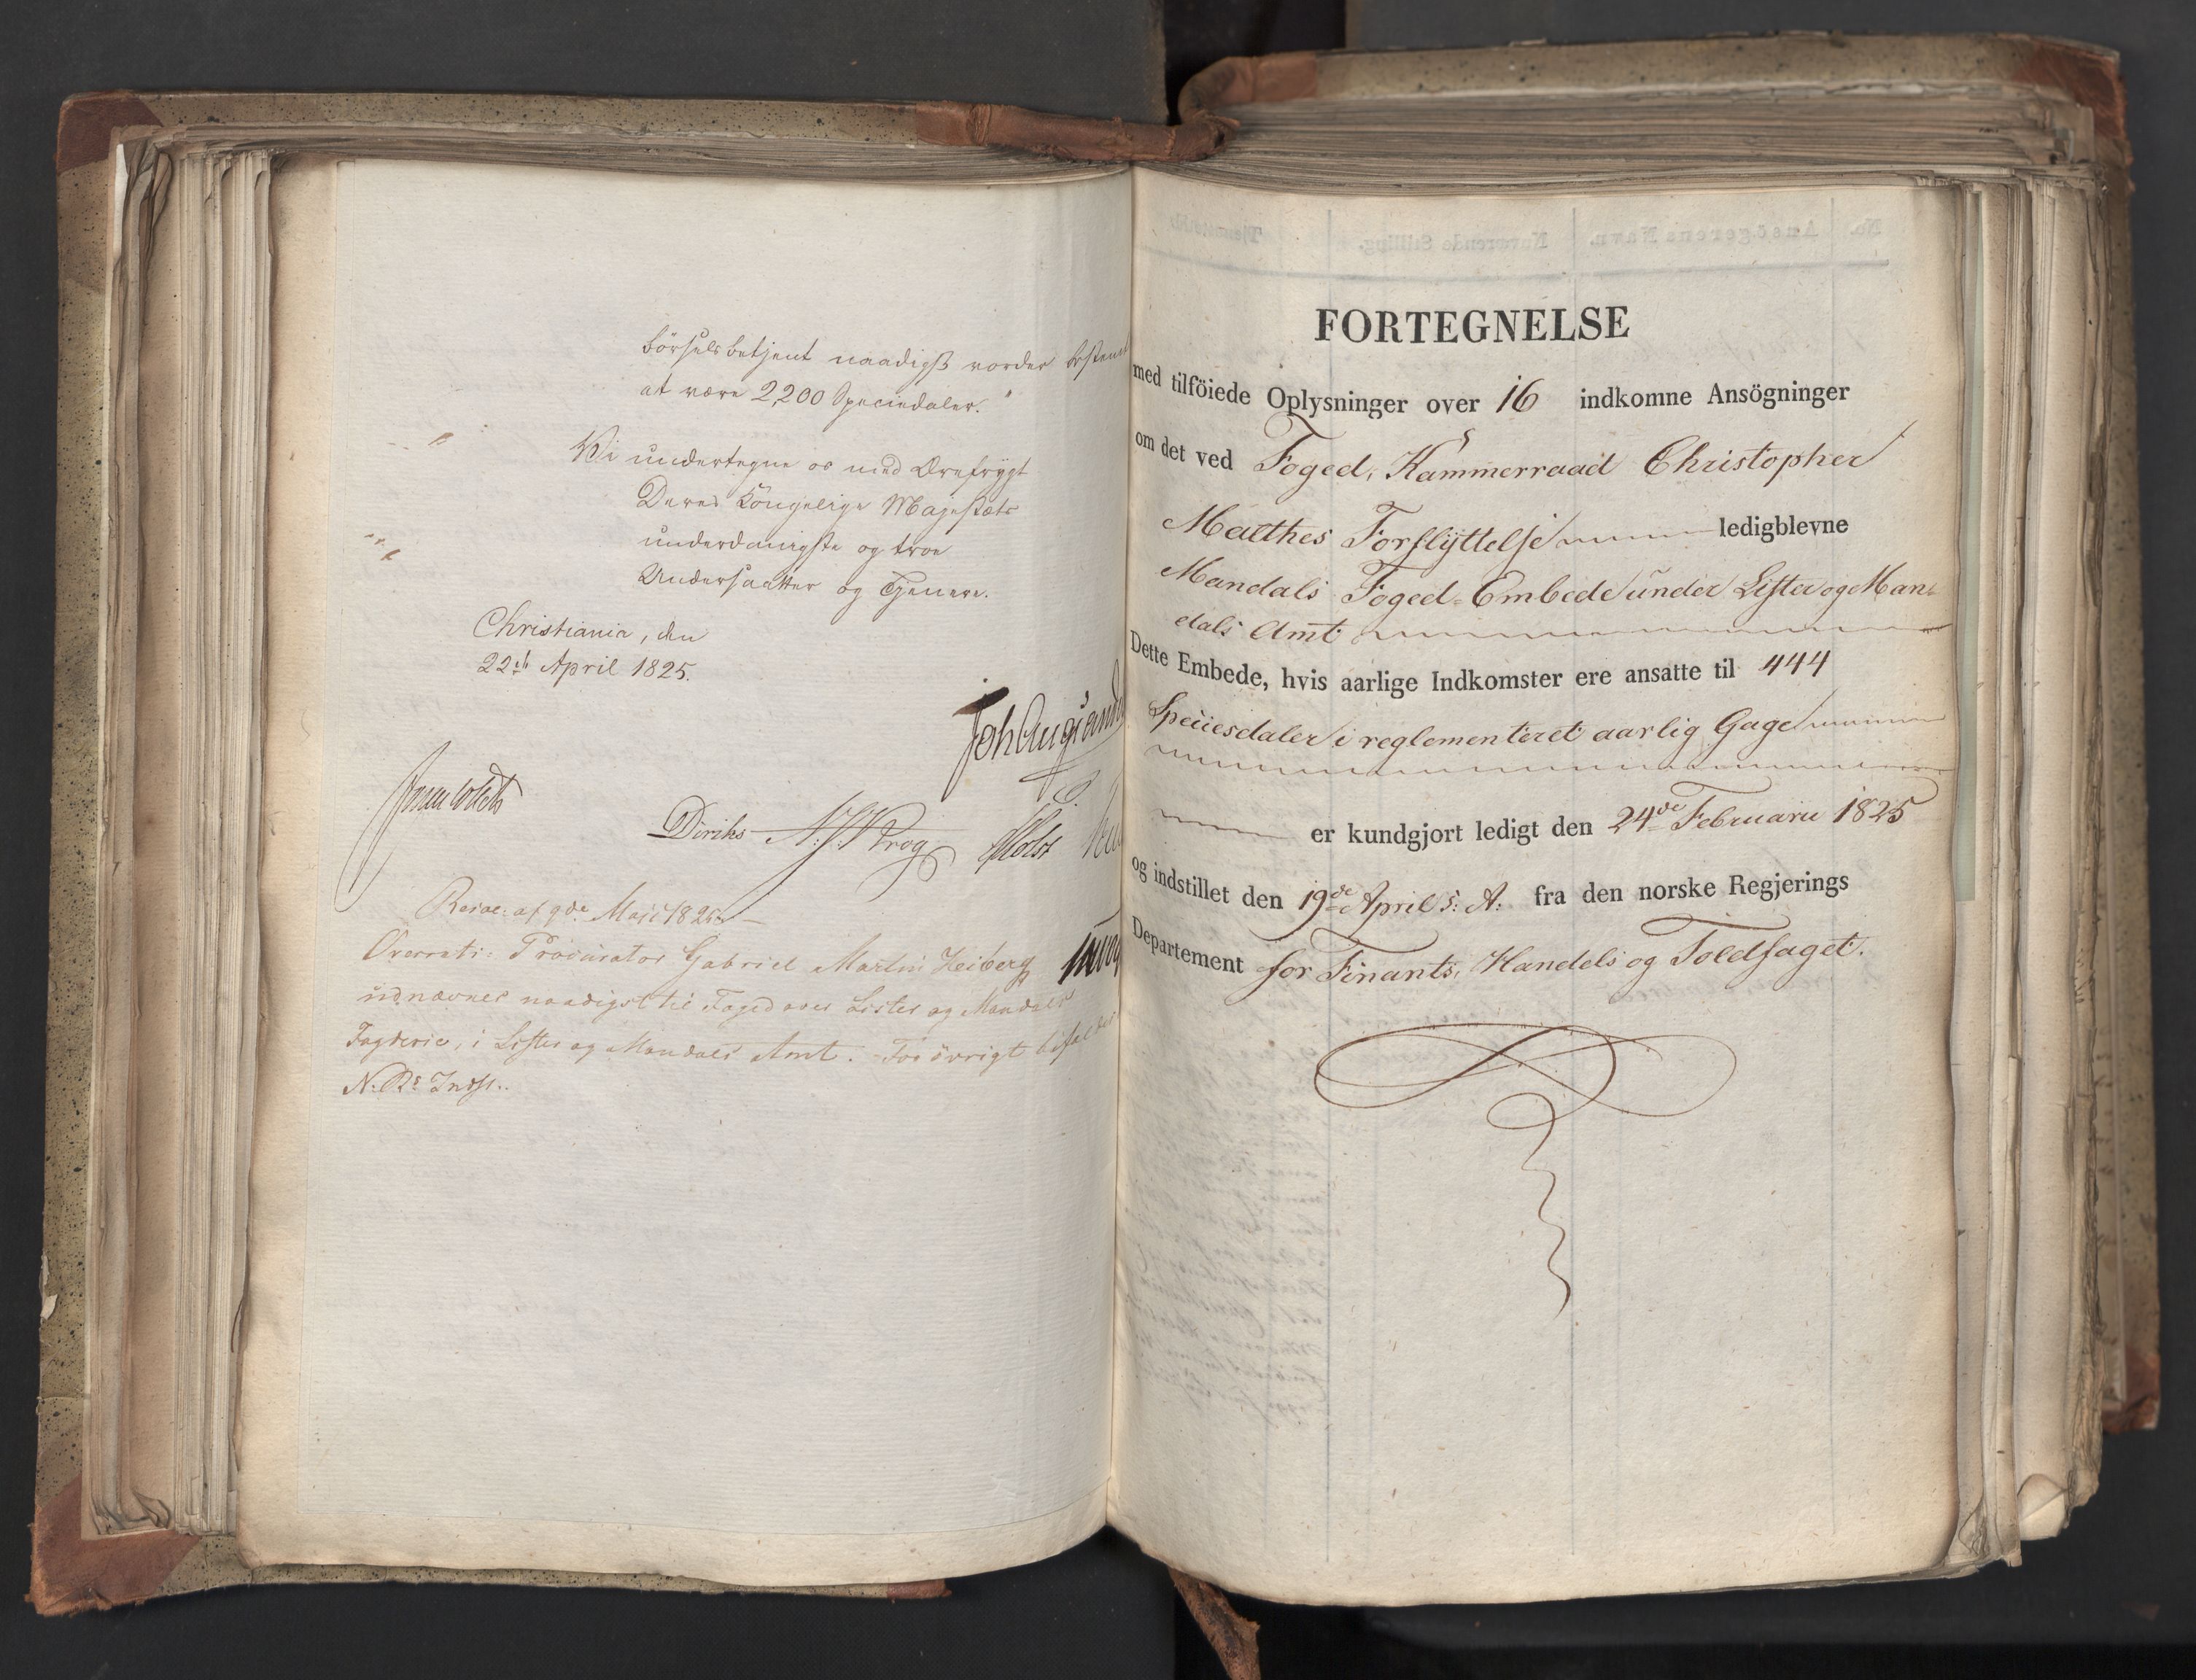 börselsbetjent naadigst vorder bestemt
at være 2,200 Speciedaler."
Vi undertegne os med Ærefrygt
Deres Kongelige Majestæts
underdanigste og troe
Undersaatter og Tjenere.
Christiania, den
22de April 1825.
Joh Aug Sand
Diriks N. J. Krog Holst
Resol: af 9de Maji 1825.
Overrets: Procurator Gabriel Martin Heiberg
udnævnes naadigst til Foged over Lister og Mandals
Fogderie, i Lister og Mandals Amt. - For övrigt bifaldes
N: Rs Indst..
FORTEGNELSE
med tilföiede Oplysninger over 16 indkomne Ansögninger
om det ved Foged, Kammerraad Christopher
Malthes Forflyttelse ledigblevne
Mandals Foged-Embede under Lister og Man-
dals Amt
Dette Embede, hvis aarlige Indkomster ere ansatte til 444
Speciesdaler i reglementeret aarlig Gage
er kundgjort ledigt den 24de Februarii 1825
og indstillet den 19de April s: A: fra den norske Regjerings
Departement for Finants, Handels og Toldfaget.